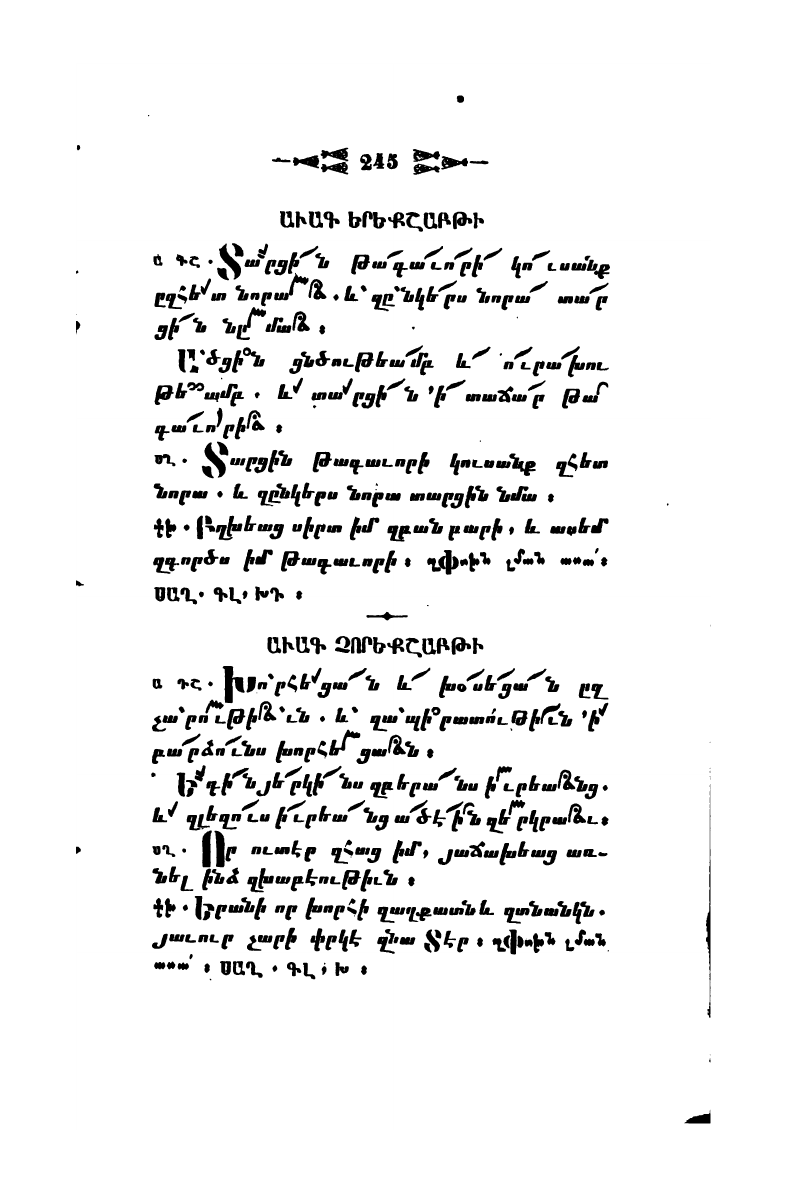 245
ԱՒԱԳ ԵՐԵՔՇԱԲԹԻ
Ա ԳՇ. Տարցին թագաւորի կուսանք
ըզհետ նորա. և զընկերս նորա տար
ցին նըմա ։
Ածցին ցնծութեամբ և ուրախու
թեամբ. և տարցին ՚ի տաճար թա
գաւորի ։
ՍՂ. Տարցին թագաւորի կուսանք զհետ
նորա. և զընկերս նորա տարցին նմա ։
ՓԽ. Բղխեաց սիրտ իմ զբան բարի, և ասեմ
զգործս իմ թագաւորի ։
ՍԱՂ. ԳԼ, ԽԴ ։
ԱՒԱԳ ՉՈՐԵՔՇԱԲԹԻ
Ա ԳՇ. Խորհեցան և խօսեցան ըզ
չարութիւն. և զապիրատութիւն ՚ի
բարձունս խորհեցան ։
Եդին յերկինս զբերանս իւրեանց.
և զլեզուս իւրեանց ածէին զերկրաւ։
ՍՂ. Որ ուտէր զհաց իմ, յաճախեաց առ-
նել ինձ զխաբէութիւն ։
ՓԽ. Երանի որ խորհի զաղքատն և զտնանկն.
յաւուր չարի փրկէ զնա Տէր ։
ՍԱՂ. ԳԼ, Խ ։